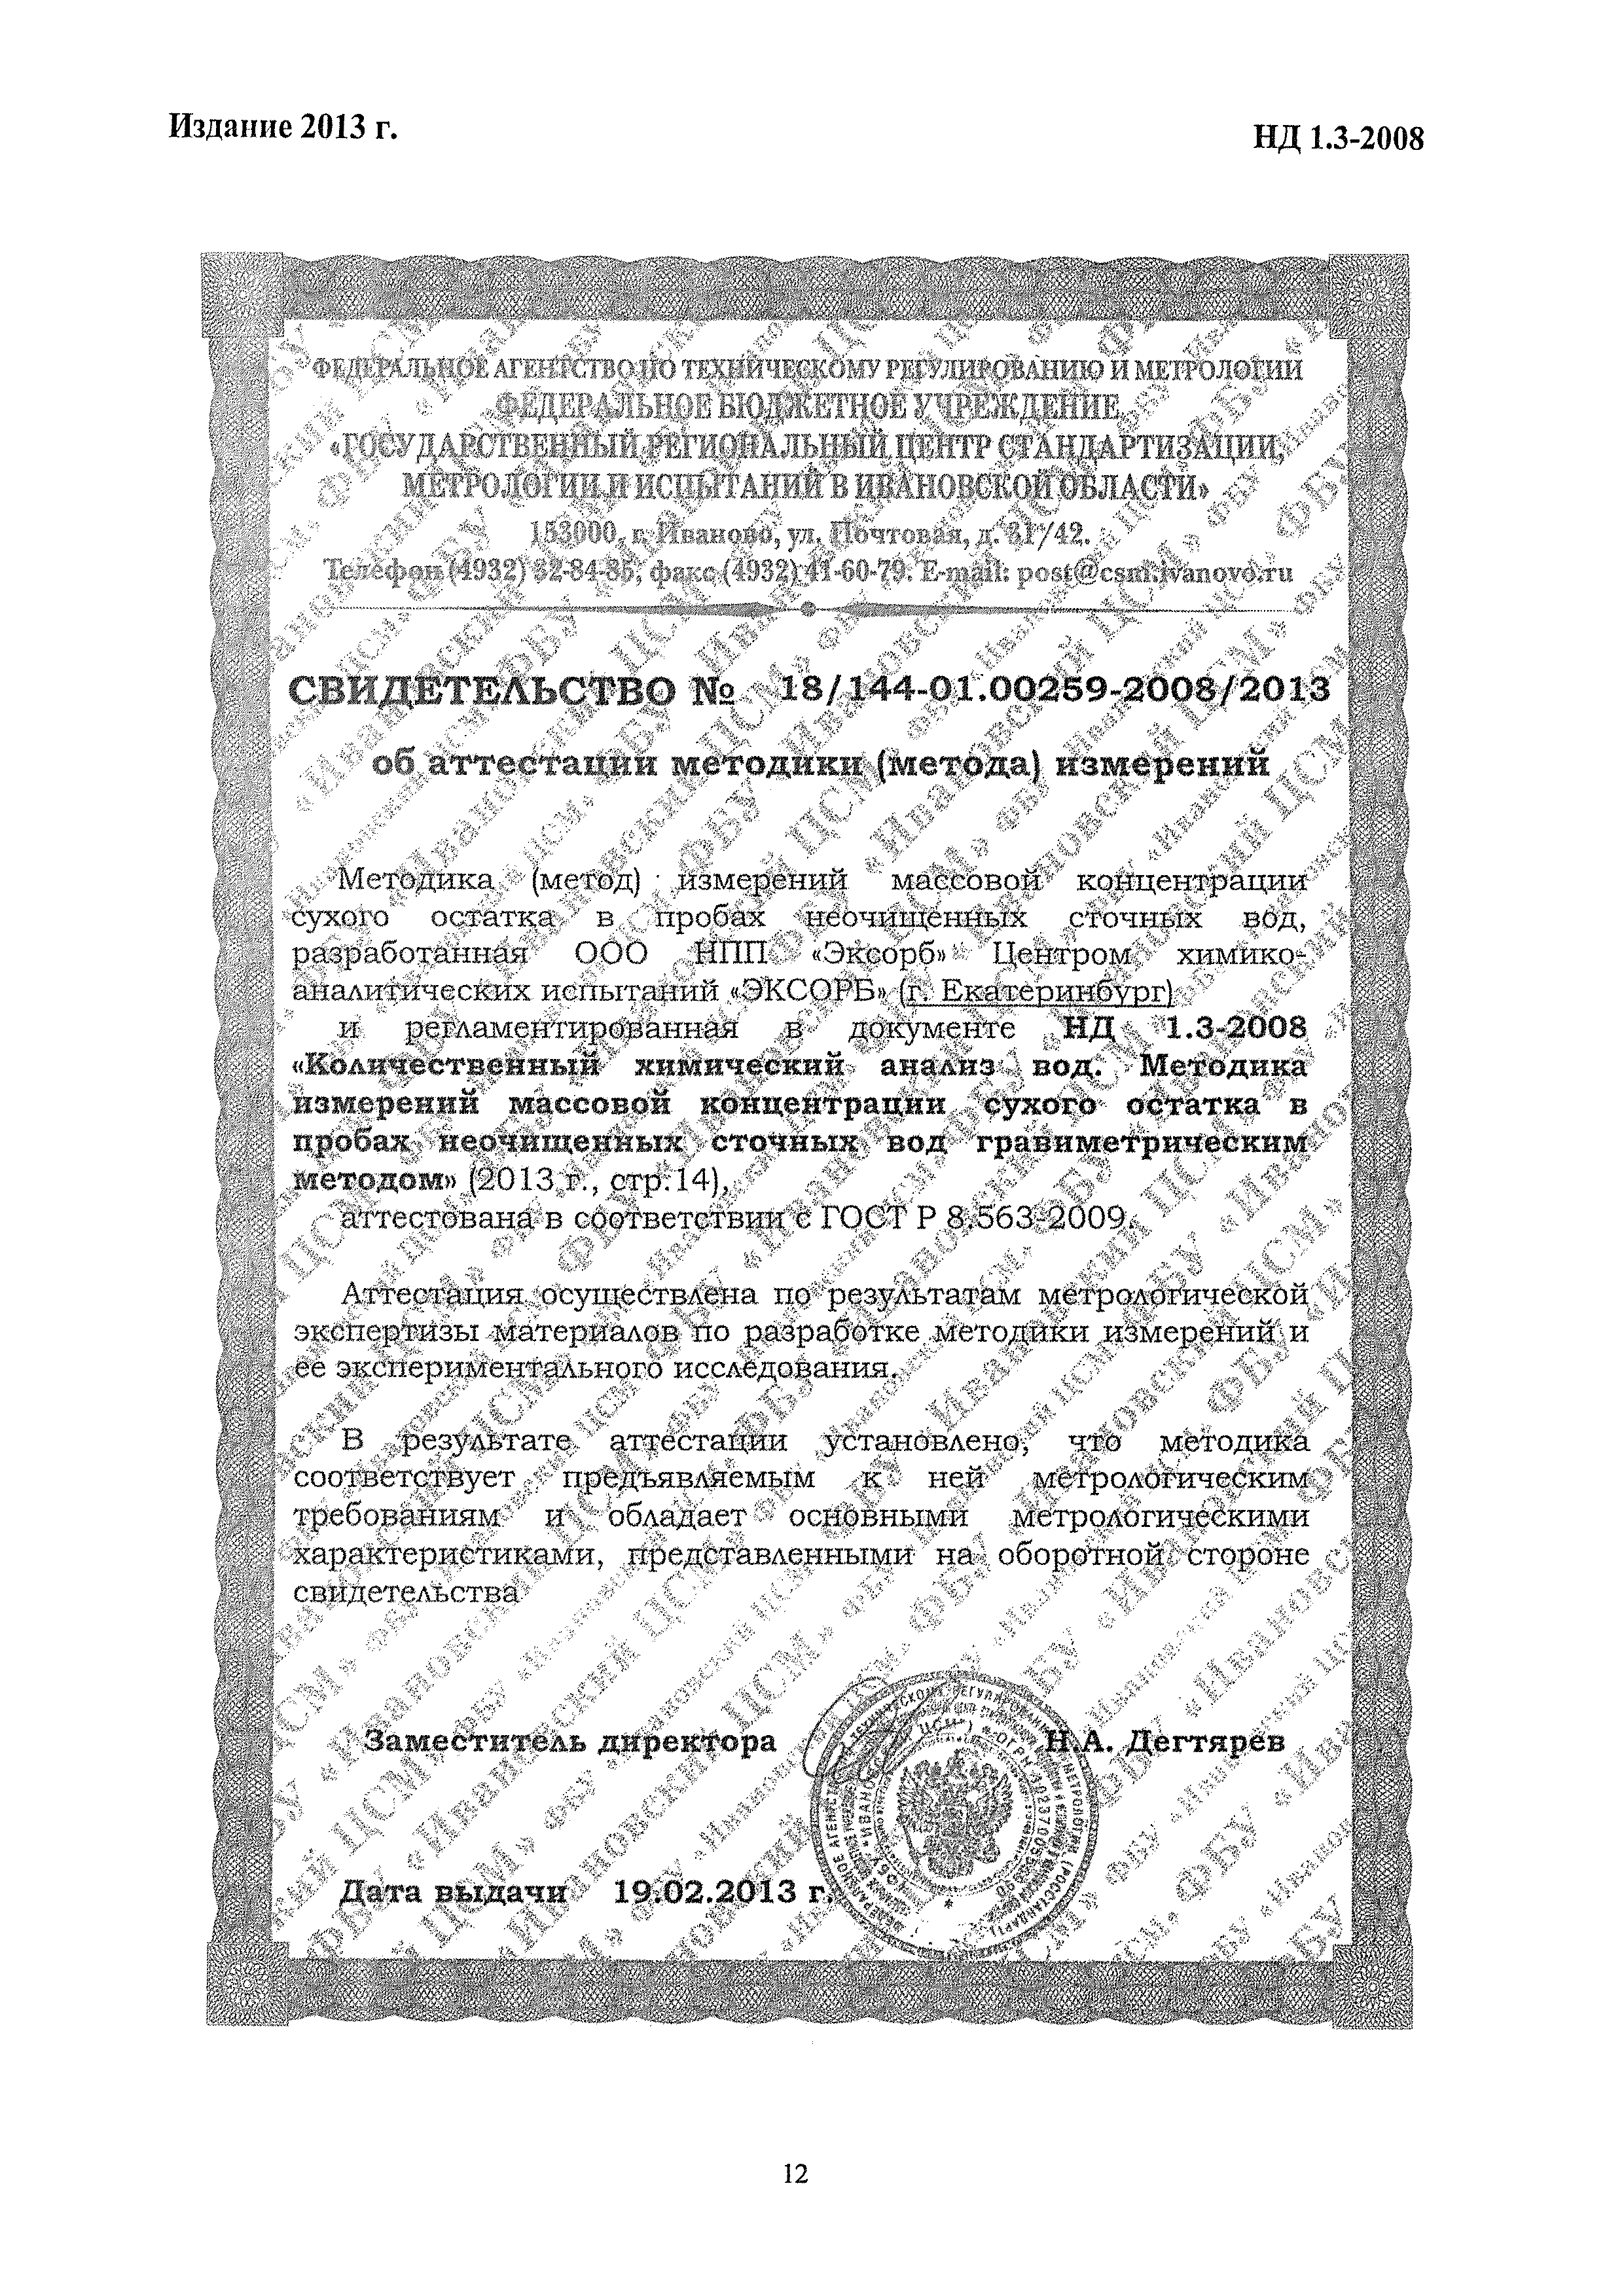 Издание 2013 г.
НД 1.3-2008
ФЕДЕРАЛЬНОЕ АГЕНТСТВО ПО ТЕХНИЧЕСКОМУ РЕГУЛИРОВАНИЮ И МЕТРОЛОГИИ
ФЕДЕРАЛЬНОЕ БЮДЖЕТНОЕ УЧРЕЖДЕНИЕ
«ГОСУДАРСТВЕННЫЙ РЕГИОНАЛЬНЫЙ ЦЕНТР СТАНДАРТИЗАЦИИ,
МЕТРОЛОГИИ И ИСПЫТАНИЙ В ИВАНОВСКОЙ ОБЛАСТИ»
153000, г. Иваново, ул. Почтовая, д. 31/42.
Телефон (4932) 32-84-85, факс (4932) 41-60-79. E-mail: post@csm.ivanovo.ru
СВИДЕТЕЛЬСТВО № 18/144-01.00259-2008/2013
об аттестации методики (метода) измерений
Методика (метод) измерений массовой концентрации
сухого остатка в пробах неочищенных сточных вод,
разработанная ООО НПП «Эксорб» Центром химико-
аналитических испытаний «ЭКСОРБ» (г. Екатеринбург)
и регламентированная в документе НД 1.3-2008
«Количественный химический анализ вод. Методика
измерений массовой концентрации сухого остатка в
пробах неочищенных сточных вод гравиметрическим
методом» (2013 г., стр.14),
аттестована в соответствии с ГОСТ Р 8.563-2009.
Аттестация осуществлена по результатам метрологической
экспертизы материалов по разработке методики измерений и
ее экспериментального исследования.
В результате аттестации установлено, что методика
соответствует предъявляемым к ней метрологическим
требованиям и обладает основными метрологическими
характеристиками, представленными на оборотной стороне
свидетельства
Заместитель директора Н.А. Дегтярев
Дата выдачи 19.02.2013 г.
12